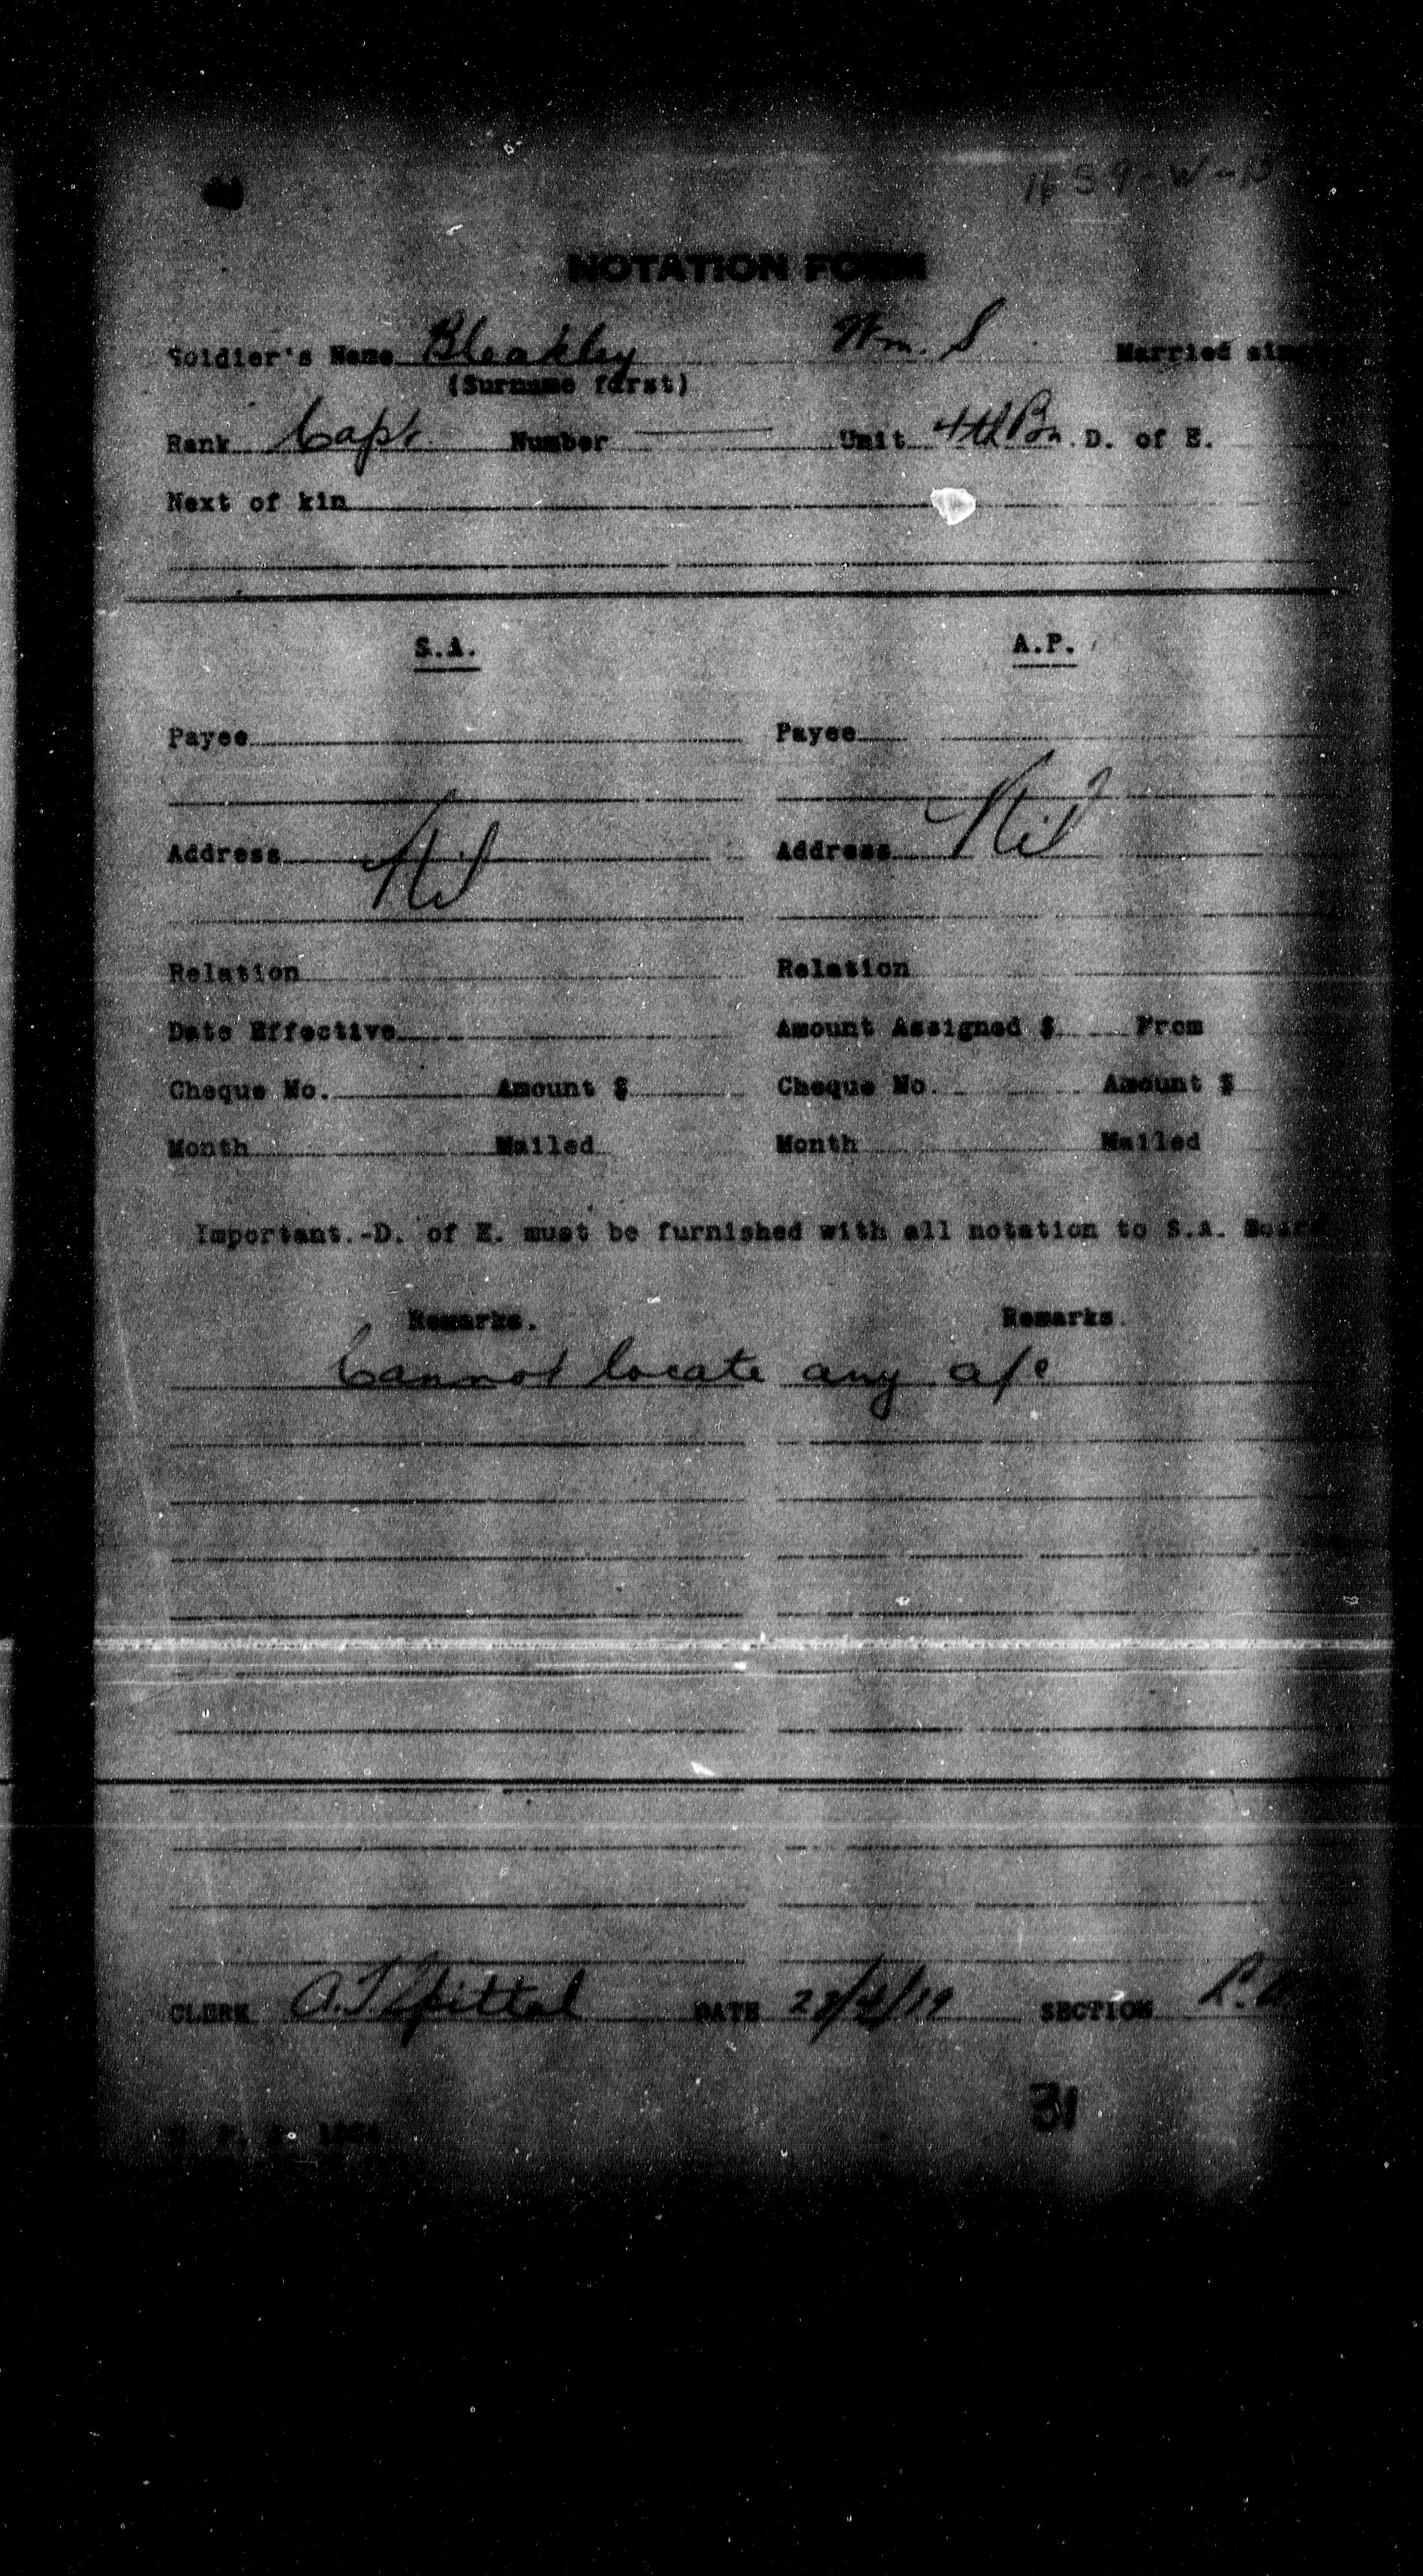 NOTATION FORM
Soldier's Name Bleakley Wm. S Married
(Surname first)
Rank Capt. Number Unit 4th Bn. D. of E.
Next of kin
S.A. A.P.
Payee Payee
Address Nil Address Nil
Relation Relation
Date Effective Amount Assigned $ From
Cheque No. Amount $ Cheque No. Amount $
Month Mailed Month Mailed
Important.-D. of E. must be furnished with all notation to S.A. Board
Remarks. Remarks.
Cannot locate any a/c
CLERK A.J. Spittal DATE SECTION
31